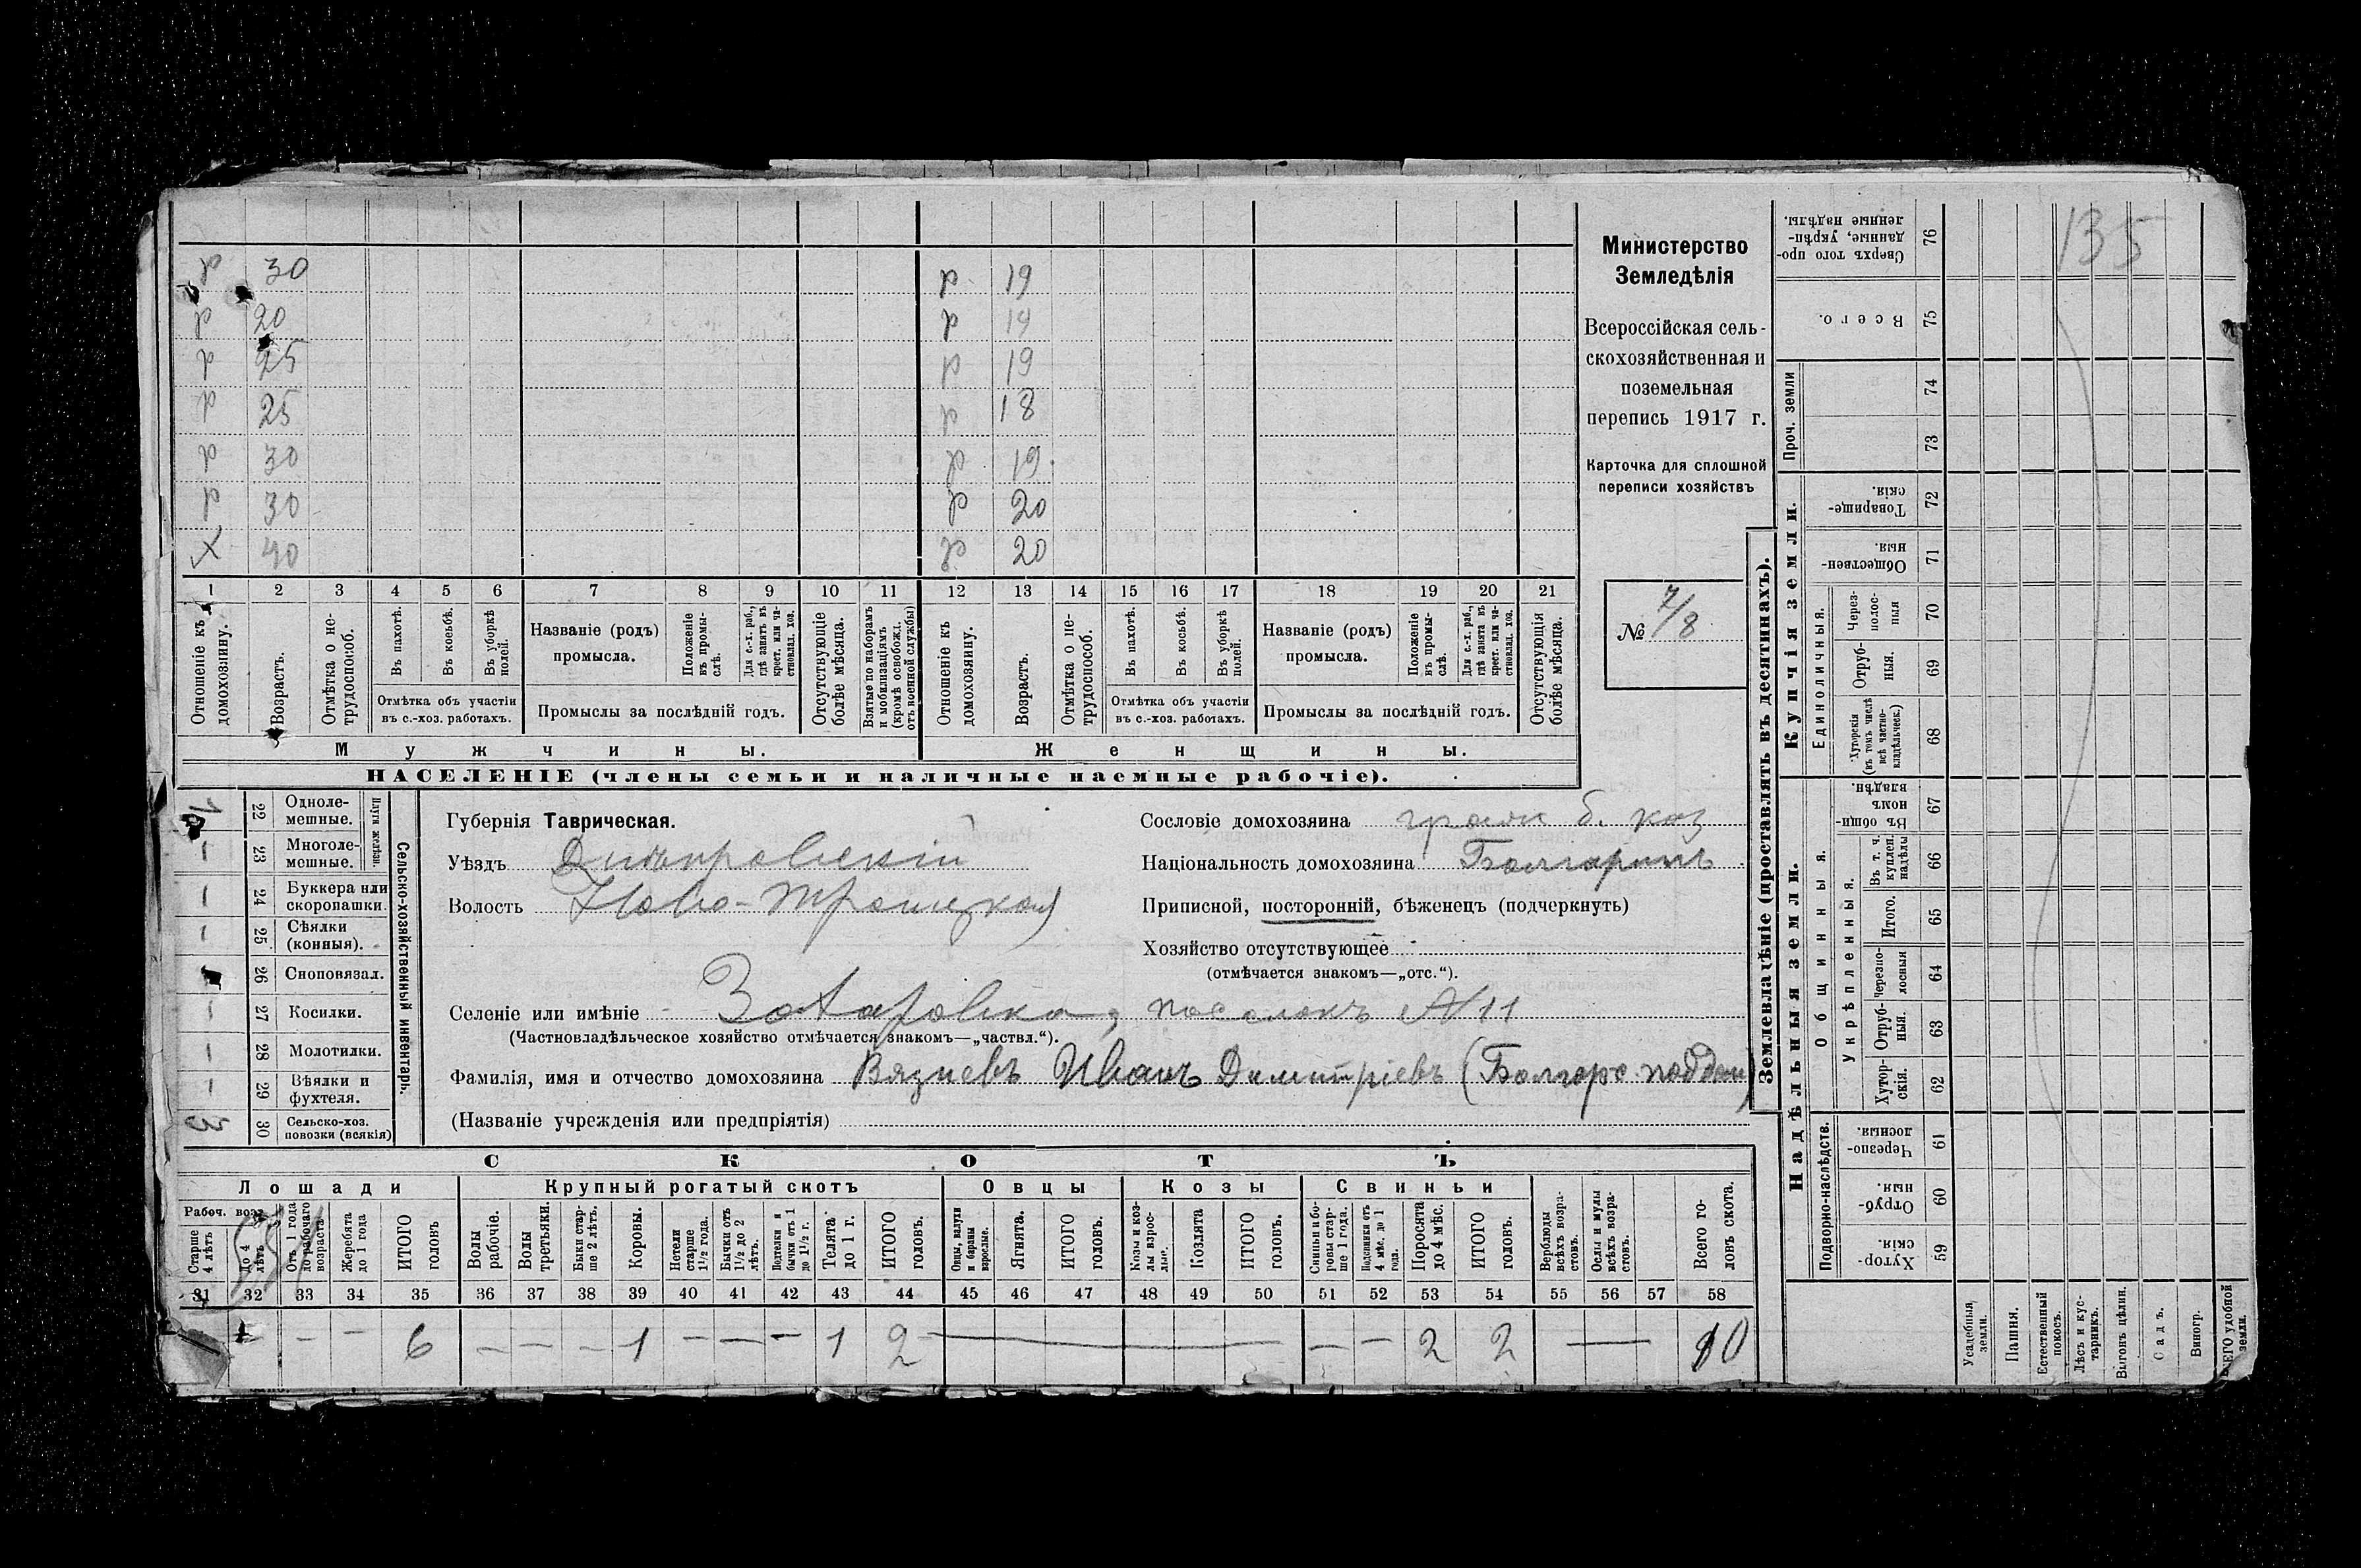 р 30 р 19
р 20 р 14
р 25 р 19
р 25 р 18
р 30 р 19
р 30 р 20
х 40 р 20
1 2 3 4 5 6 7 8 9 10 11 12 13 14 15 16 17 18 19 20 21
Отношеніе къ домохозяину.
Возрастъ.
Отмѣтка о не-трудоспособ.
Въ пахотѣ.
Въ косьбѣ.
Въ уборкѣ полей.
Отмѣтка объ участіи
въ с.-хоз. работахъ.
Названіе (родъ)
промысла.
Положеніе въ промы-слѣ.
Для с.-х. раб., гдѣ занятъ въ крест. или ча-стновлад. хоз.
Промыслы за послѣдній годъ.
Отсутствующіе болѣе мѣсяца.
Взятые по наборамъ и мобилизаціямъ (кромѣ освобожд. отъ военной службы)
Отношеніе къ домохозяину.
Возрастъ.
Отмѣтка о не-трудоспособ.
Въ пахотѣ.
Въ косьбѣ.
Въ уборкѣ полей.
Отмѣтка объ участіи
въ с.-хоз. работахъ.
Названіе (родъ)
промысла.
Положеніе въ промы-слѣ.
Для с.-х. раб., гдѣ занята въ крест. или ча-стновлад. хоз.
Промыслы за послѣдній годъ.
Отсутствующія болѣе мѣсяца.
Мужчины. Женщины.
НАСЕЛЕНІЕ (члены семьи и наличные наемные рабочіе).
Министерство
Земледѣлія
Всероссійская сель-
скохозяйственная и
поземельная
перепись 1917 г.
Карточка для сплошной
переписи хозяйствъ
№ 7/8
Сельско-хозяйственный инвентарь.
Плуги желѣзн.
22 Одноле-
мешные.
– 23 Многоле-
мешные.
– 24 Буккера или
скоропашки.
– 25 Сѣялки
(конныя).
26 Сноповязал.
– 27 Косилки.
– 28 Молотилки.
– 29 Вѣялки и
фухтеля.
3 30 Сельско-хоз.
повозки (всякія)
Губернія Таврическая.
Уѣздъ Днѣпровскій
Волость Ново-Троицкая
Сословіе домохозяина
Національность домохозяина Болгаринъ
Приписной, посторонній, бѣженецъ (подчеркнуть)
Хозяйство отсутствующее
(отмѣчается знакомъ—„отс.“).
Селеніе или имѣніе поселокъ №11
(Частновладѣльческое хозяйство отмѣчается знакомъ—„частвл.“).
Фамилія, имя и отчество домохозяина Иванъ Димитріевъ
(Названіе учрежденія или предпріятія)
СКОТЪ
Лошади Крупный рогатый скотъ Овцы Козы Свиньи
Рабоч. возр.
Старше 4 лѣтъ
До 4 лѣтъ
Отъ 1 года до рабочаго возраста
Жеребята до 1 года
ИТОГО головъ
Волы рабочіе.
Волы третьяки.
Быки стар-ше 2 лѣтъ.
Коровы.
Нетели старше 1½ года.
Бычки отъ 1½ до 2 лѣтъ.
Подтелки и бычки отъ 1 до 1½ г.
Телята до 1 г.
ИТОГО головъ.
Овцы, валухи и бараны взрослые.
Ягнята.
ИТОГО головъ.
Козы и коз-лы взрос-лые.
Козлята
ИТОГО головъ.
Свиньи и бо-ровы стар-ше 1 года.
Подсвинки отъ 4 мѣс. до 1 года.
Поросята до 4 мѣс.
ИТОГО головъ.
Верблюды всѣхъ возра-стовъ.
Ослы и мулы всѣхъ возра-стовъ.
Всего го-ловъ скота.
31 32 33 34 35 36 37 38 39 40 41 42 43 44 45 46 47 48 49 50 51 52 53 54 55 56 57 58
– – – 6 – – – 1 – – – 1 2 – – – 2 2 – 10
Землевладѣніе (проставлять въ десятинахъ).
Купчія земли.
Надѣльныя земли.
135
76 Сверхъ того про-данные, укрѣп-ленные надѣлы.
75 Всего.
Проч. земли
74
73
72 Товарище-скія.
71 Обществен-ныя.
Единоличныя.
70 Через-полос-ныя
69 Отруб-ныя.
68 Хуторскія (въ томъ числѣ всѣ частно-владѣльческ.)
Общинныя.
67 Въ общин-номъ владѣн.
Укрѣпленныя.
66 Въ т. ч. куплен. надѣлы
65 Итого.
64 Черезпо-лосныя
63 Отруб-ныя.
62 Хутор-скія.
Подворно-наслѣдств.
61 Черезпо-лосныя.
60 Отруб-ныя.
59 Хутор-скія.
Усадебныя земли.
Пашня.
Естественный покосъ.
Лѣсъ и кус-тарникъ.
Выгонъ цѣлин.
Садъ.
Виногр.
ВСЕГО удобной земли.